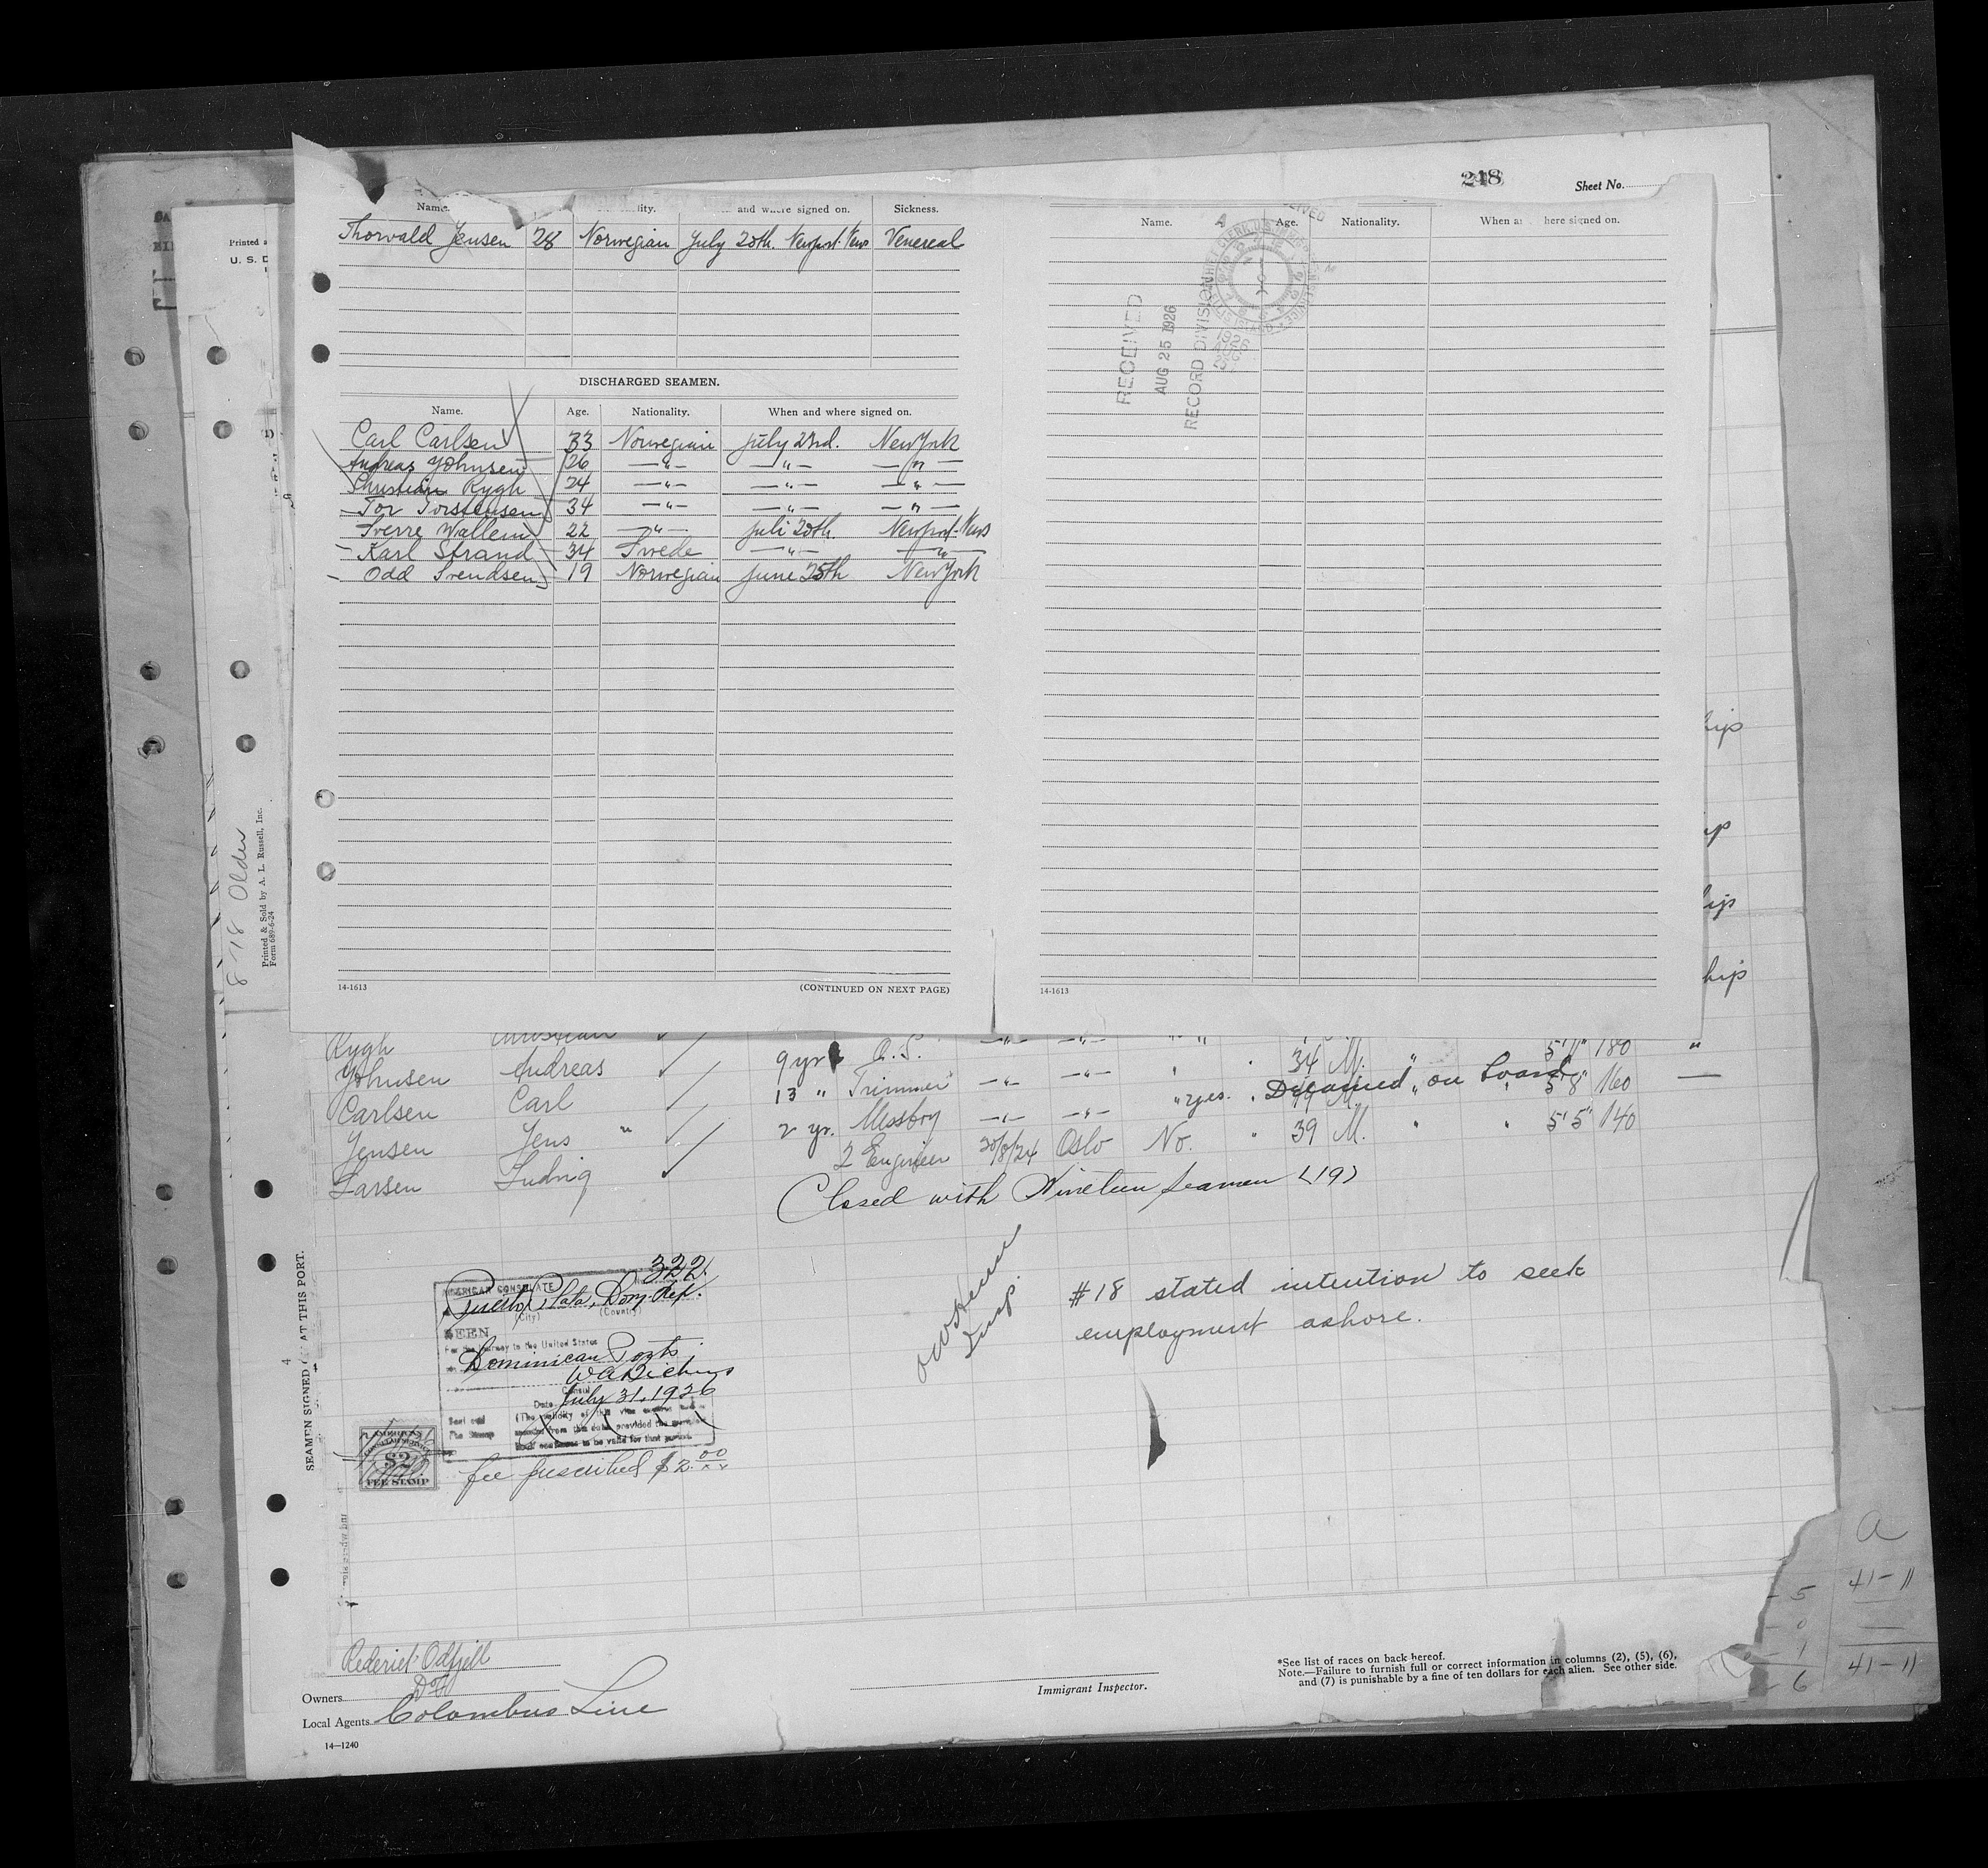 248
Sheet No.
Name. and where signed on. Sickness.
Thorvald Jensen 28 Norwegian July 20th. Newport-News Venereal
DISCHARGED SEAMEN.
Name. Age. Nationality. When and where signed on.
Carl Carlsen 33 Norwegian July 23rd. New York
Andreas Yohnsen 26 —"— —"— —"—
Christian Rygh 24 —"— —"— —"—
Tor Torstensen 34 —"— —"— —"—
Sverre Wallem 22 —"— Juli 20th. Newport-News
Karl Strand 34 Swede —"— —"—
Odd Svendsen 19 Norwegian June 25th New York
14-1613
(CONTINUED ON NEXT PAGE)
Name. Age. Nationality. When and where signed on.
RECEIVED
AUG 25 1926
RECORD DIVISION
14-1613
Printed
U. S. D
8-18 Older
Printed & Sold by A. L. Russell, Inc.
Form 689-6-24
hip
hip
Rygh Christian
Yohnsen Andreas 9 yr O.S. —"— —"— 34 M. " 5'11" 180 "
Carlsen Carl 13 " Trimmer —"— —"— " Detained on board 5'8" 160 —
Jensen Jens " 2 yr. Messboy —"— —"— " yes.
Larsen Ludvig 2 Engineer 30/8/24 Oslo No. " 39 M. " " 5'5" 140
Closed with Nineteen seamen (19)
#18 stated intention to seek
employment ashore.
Insp.
SEAMEN SIGNED AT THIS PORT.
4
322.
AMERICAN CONSULATE
Puerto Plata, Dom. Rep.
(City) (Country)
SEEN
For the journey to the United States
Dominican Ports
Consul
Date July 31, 1926
$2
FEE STAMP
fee prescribed $2.00
Rederiet Odfjell
Owners
Local Agents Columbus Line
14—1240
Immigrant Inspector.
*See list of races on back hereof.
Note.—Failure to furnish full or correct information in columns (2), (5), (6),
and (7) is punishable by a fine of ten dollars for each alien. See other side.
a
- 5 41-11
- 0 —
- 1
- 6 41-11